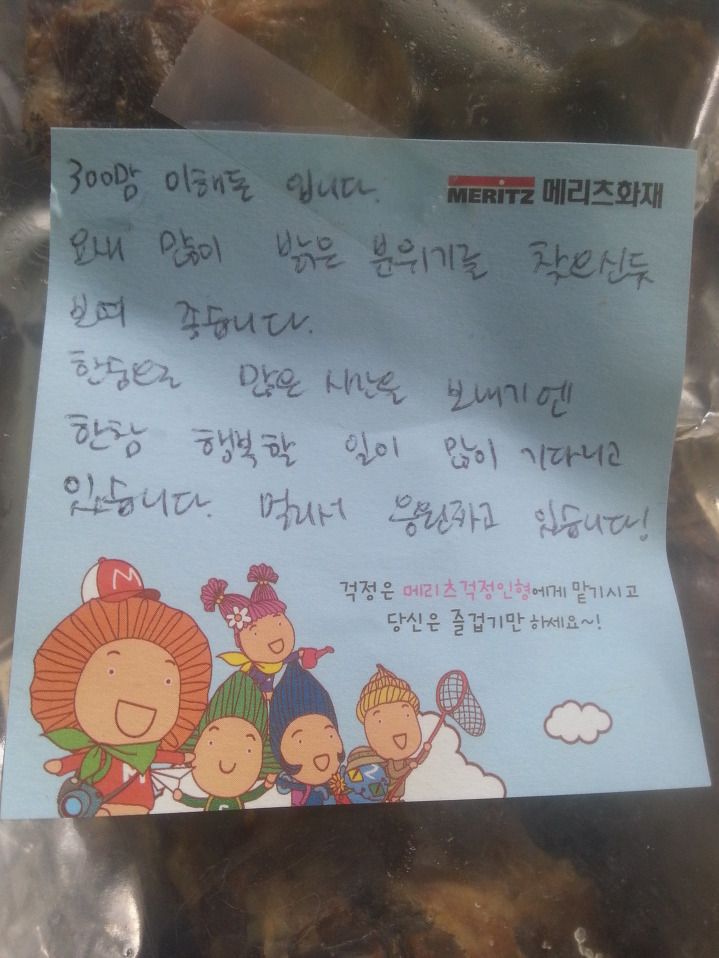 300맘 이해돈 입니다.
MERITZ 메리츠화재
요새 많이 밝은 분위기를 찾으신듯
보여 좋습니다.
한숨으로 많은 시간을 보내기엔
한참 행복할 일이 많이 기다리고
있습니다. 멀리서 응원하고 있습니다!
걱정은 메리츠걱정인형에게 맡기시고
당신은 즐겁기만 하세요~!
M
M